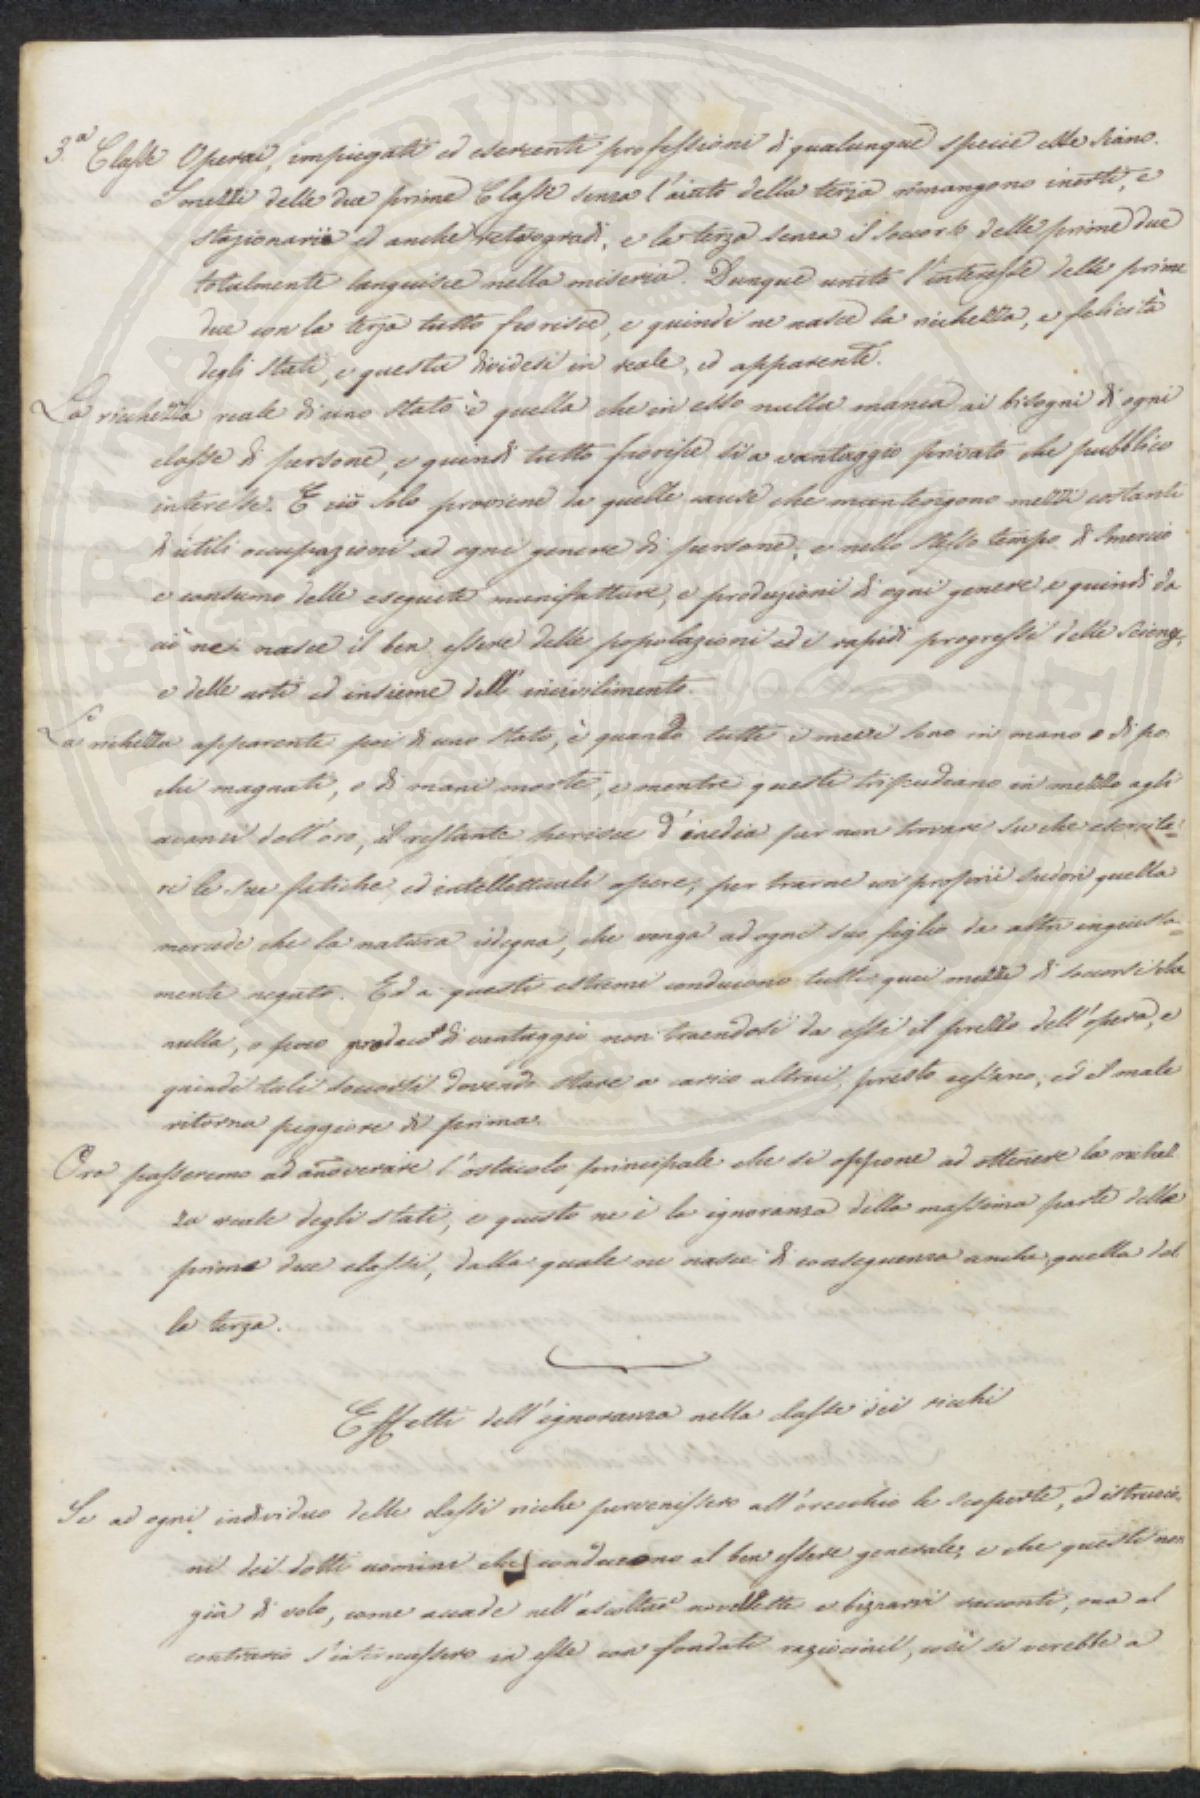 3.ª Classe Operai, impiegati ed esercenti professioni di qualunque specie esse siano.
I mezzi delle due prime Classe senza l'aiuto della terza rimangono inerti, e
stazionarii ed anche retrogradi, e la terza senza il soccorso delle prime due
totalmente languisce nella miseria. Dunque unito l'interesse delle prime
due con la terza tutto fiorisce, e quindi ne nasce la richezza, e felicità
degli stati, e questa dividesi in reale, ed apparente.
La richezza reale di uno stato è quella che in esso nulla manca ai bisogni di ogni
classe di persone, e quindi tutto fiorisce sì a vantaggio privato che pubblico
interesse. E ciò solo proviene da quelle cause che mantengono mezzi costanti
di utili occupazioni ad ogni genere di persone, e nello stesso tempo di smercio
e consumo delle eseguite manifatture, e produzioni di ogni genere e quindi da
ciò ne nasce il ben essere delle popolazioni ed i rapidi progressi delle scienze,
e delle arti ed insieme dell' incivilimento.
La richezza apparente poi di uno stato, è quando tutti i mezzi sono in mano o di po
chi magnati, o di mani morte, e mentre questi tripudiano in mezzo agli
avanzi dell'oro, il restante perisce d'inedia per non trovare su che esercita=
re le sue fatiche, ed intellettuali opere, per trarne coi proprii sudori quella
mercede che la natura sdegna, che venga ad ogni suo figlio da altri ingiusta=
mente negata. Ed a questi estremi conducono tutti quei mezzi di soccorsi che
nulla, o poco producono di vantaggio non traendosi da essi il prezzo dell'opera, e
quindi tali soccorsi dovendo stare a carico altrui, presto cessano, ed il male
ritorna peggiore di prima.
Ora passeremo ad annoverare l'ostacolo principale che si oppone ad ottenere la richez
za reale degli stati, e questo ne è la ignoranza della massima parte delle
prime due classi, dalla quale ne nasce di conseguenza anche quella del
la terza.
Effetti dell'ignoranza nella classe dei ricchi
Se ad ogni individuo delle classi ricche pervenissero all'orecchio le scoperte, ed istruzio
ni dei dotti uomini che conducono al ben essere generale, e che questi non
già di volo, come accade nell'ascoltare novellette e bizzarri racconti, ma al
contrario s'internassero in esse con fondati raziocinii, così si verebbe a